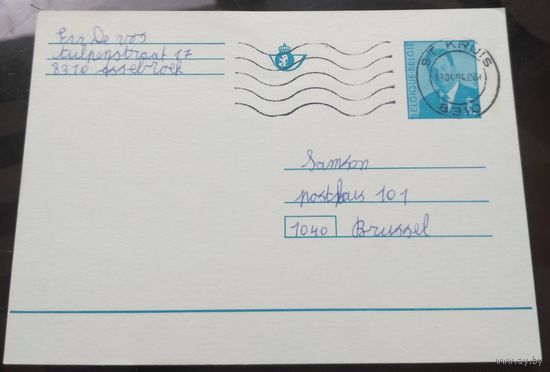 Eva De vos
tulpenstraat 17
8310 Assebroek
BELGIQUE-BELGIË
ST. KRUIS
8310
Samson
postbus 101
1040 Brussel